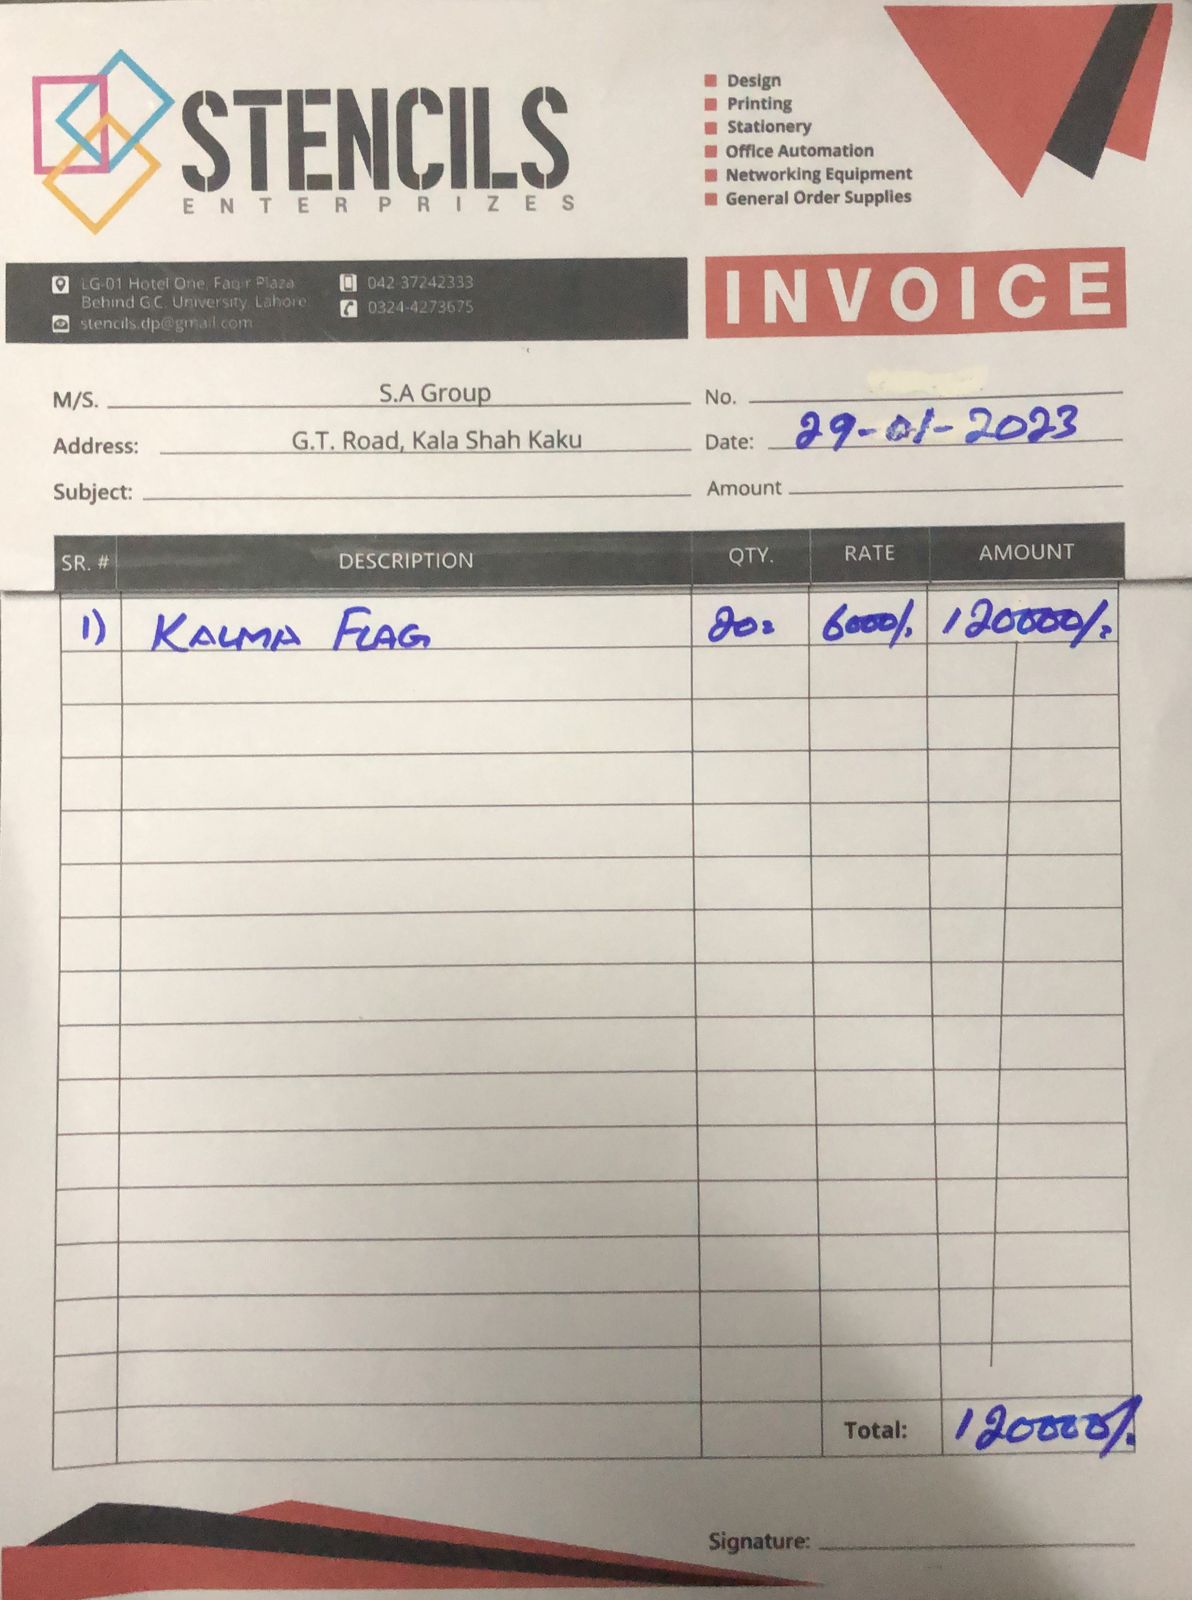 STENCILS
ENTERPRIZES
Design
Printing
Stationery
Office Automation
Networking Equipment
General Order Supplies
LG-01 Hotel One, Faqir Plaza
Behind G.C. University, Lahore
stencils.dp@gmail.com
042 37242333
0324-4273675
INVOICE
M/S. S.A Group
No.
Address: G.T. Road, Kala Shah Kaku
Date: 29-01-2023
Subject:
Amount
SR. # DESCRIPTION QTY. RATE AMOUNT
1) KALMA FLAG 20= 6000/. 120000/.
Total: 120000/.
Signature: